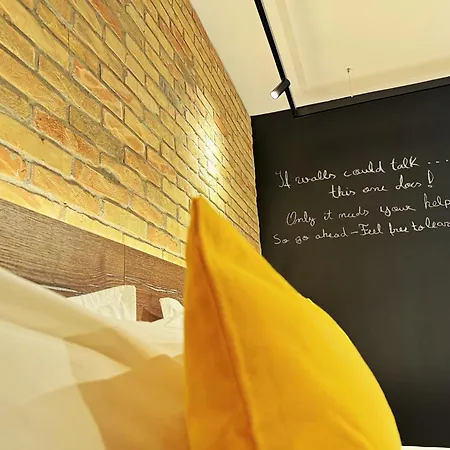 If walls could talk ....
this one does!
Only it needs your help
So go ahead - Feel free to lear